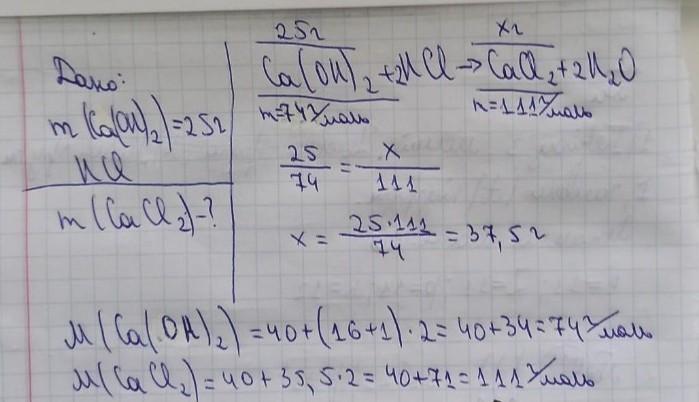 Дано:
m(Ca(OH)2)=25г
HCl
m(CaCl2)-?
25г xг
Ca(OH)2+2HCl→CaCl2+2H2O
m=74г/моль n=111г/моль
25/74=x/111
x=25·111/74=37,5г
M(Ca(OH)2)=40+(16+1)·2=40+34=74г/моль
M(CaCl2)=40+35,5·2=40+71=111г/моль